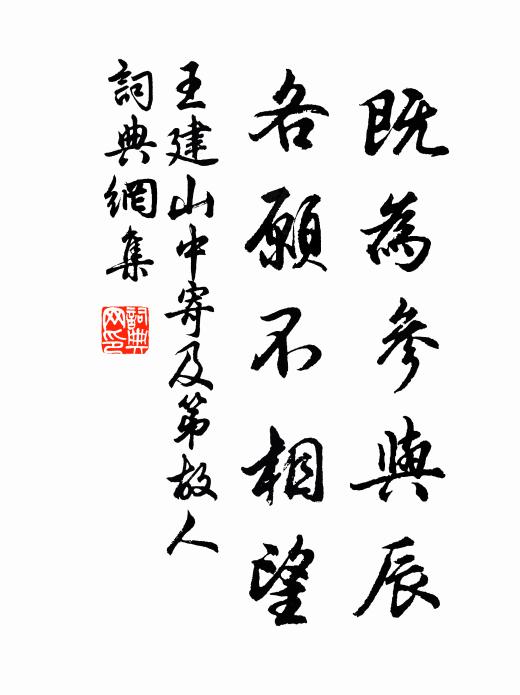 既為參與辰
各願不相望
王建山中寄及第故人
詞典網集
詞典网印